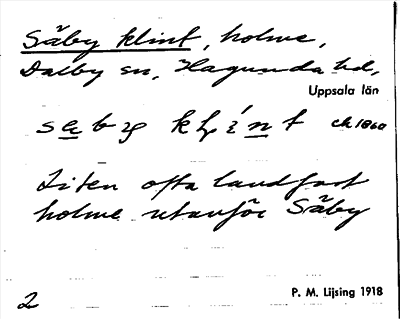 Säby klint, holme,
Dalby sn, Hagunda hd,
Uppsala län
ck 1860
Liten ofta landfast
holme utanför Säby
2 P. M. Lijsing 1918